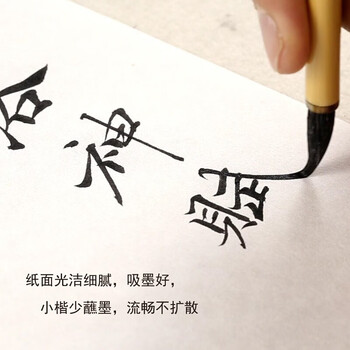 神賦
纸面光洁细腻，吸墨好，
小楷少蘸墨，流畅不扩散